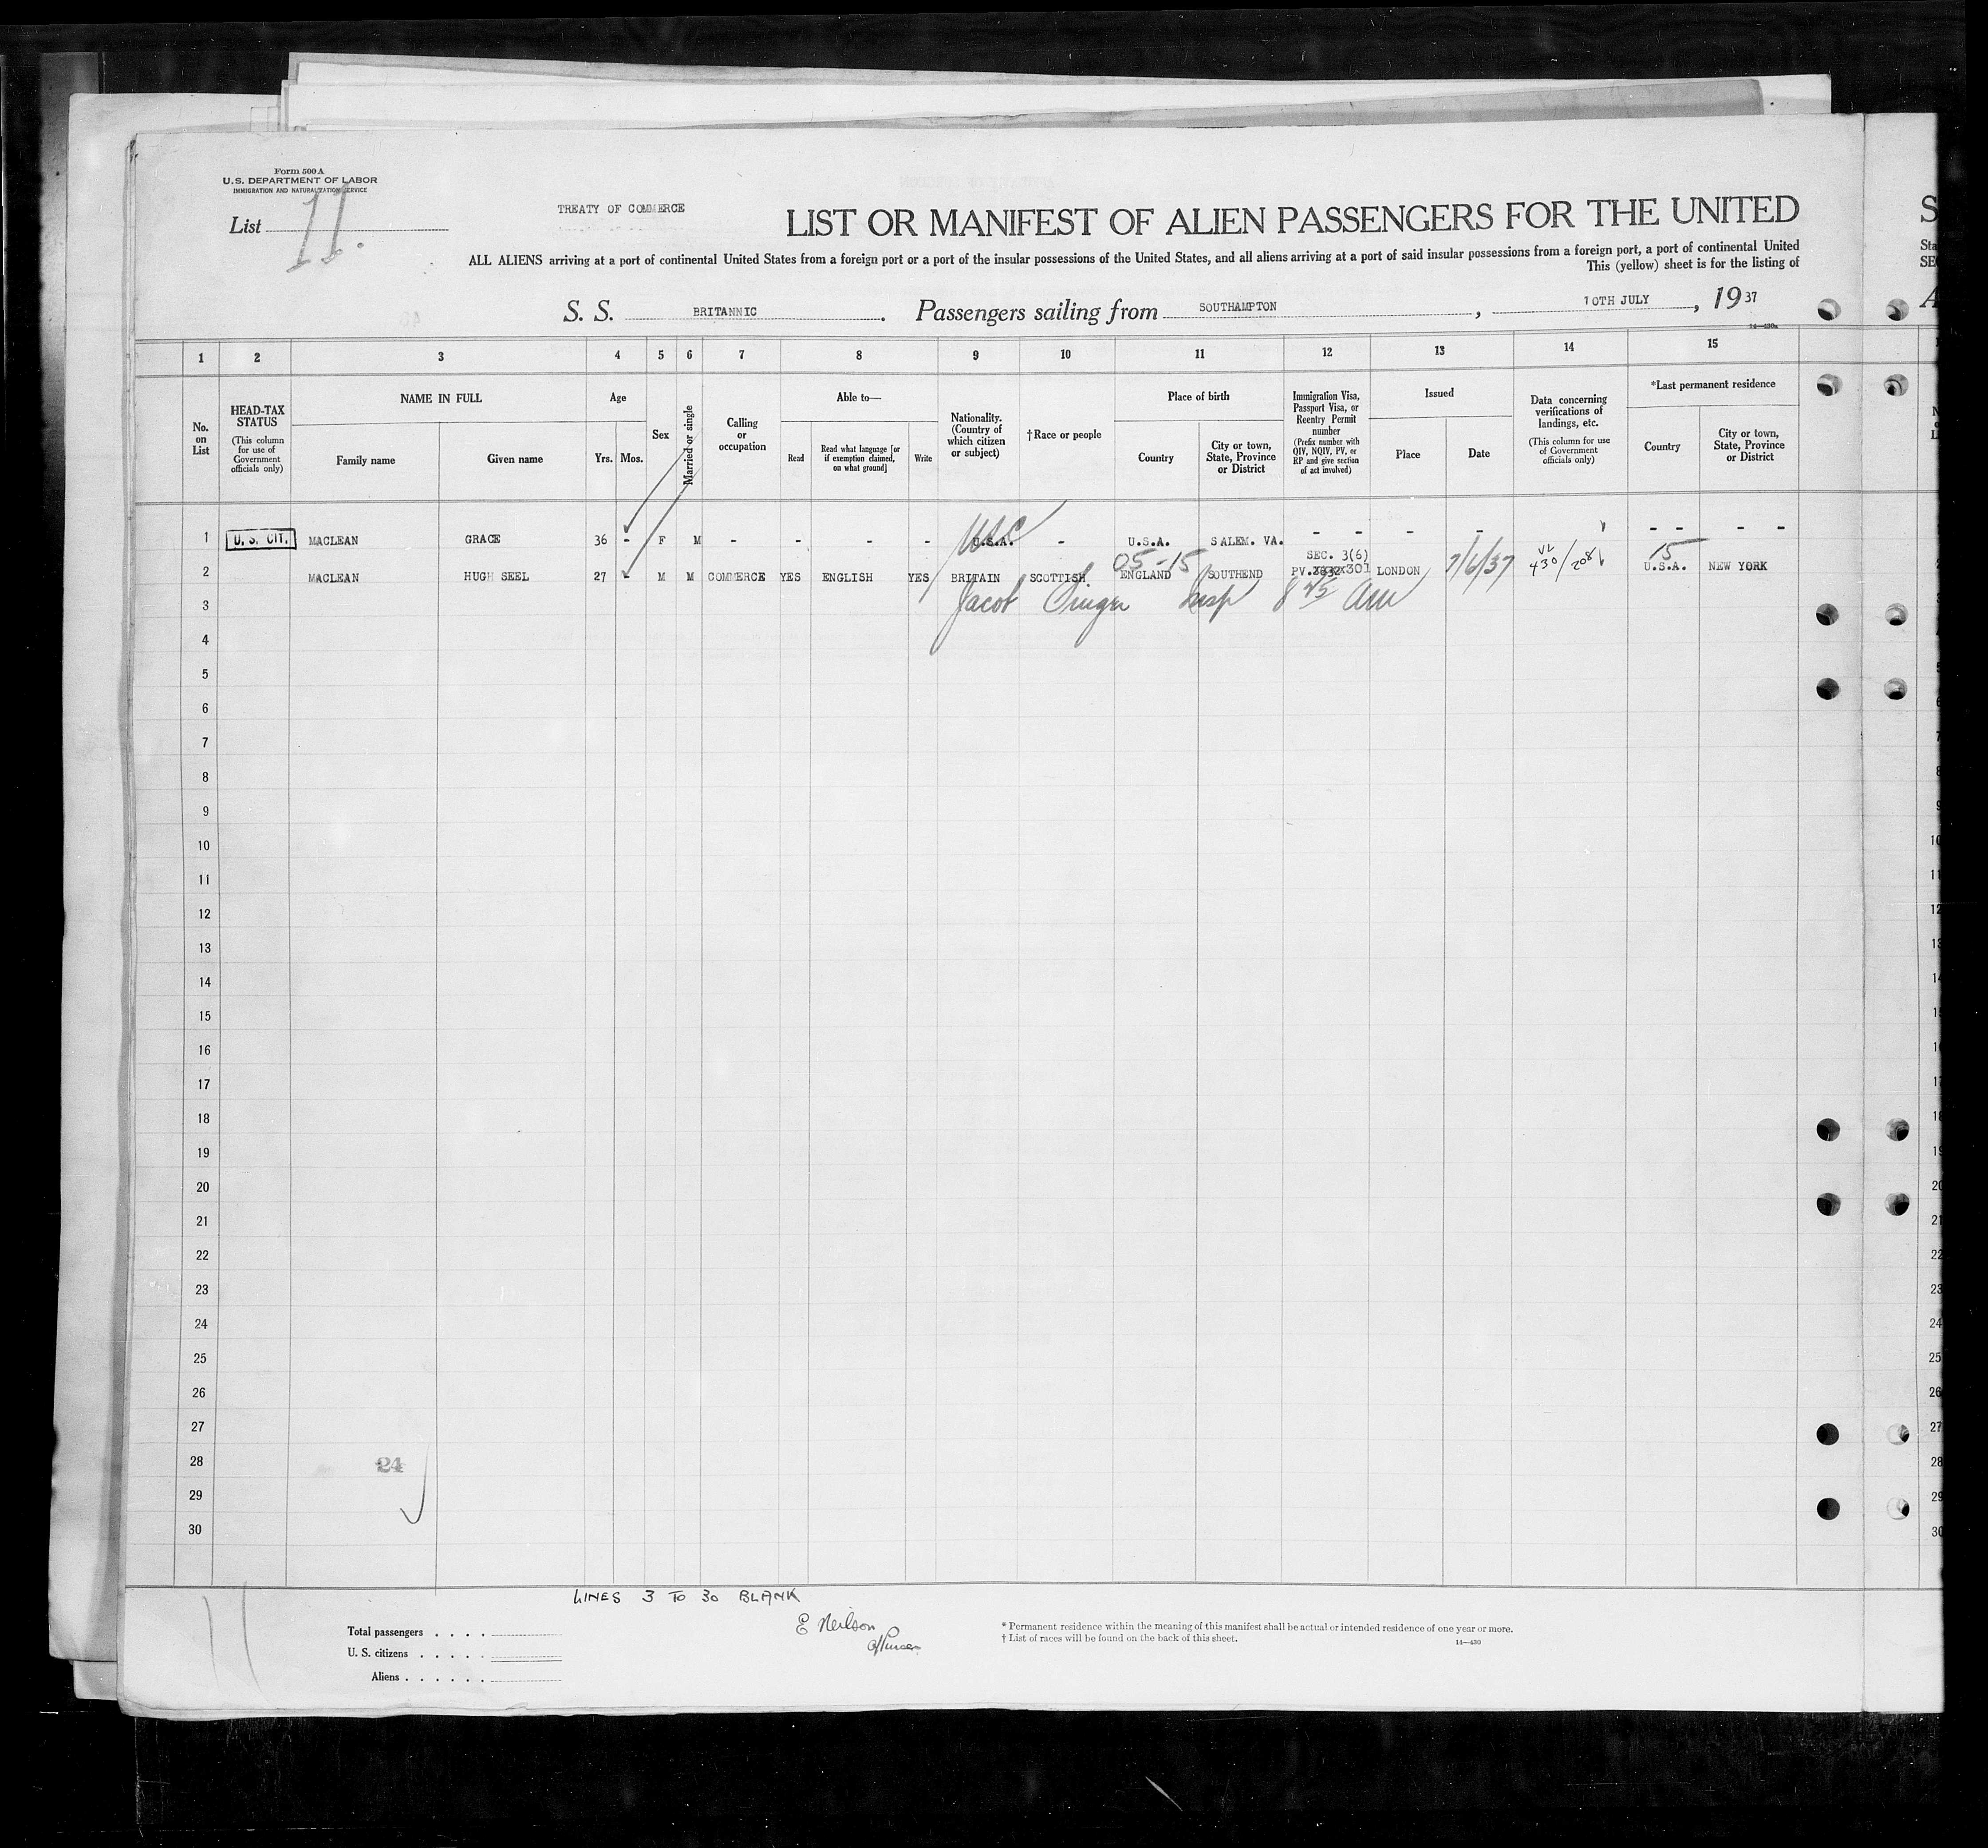 Form 500 A
U.S. DEPARTMENT OF LABOR
IMMIGRATION AND NATURALIZATION SERVICE
List 11.
TREATY OF COMMERCE
LIST OR MANIFEST OF ALIEN PASSENGERS FOR THE UNITED
ALL ALIENS arriving at a port of continental United States from a foreign port or a port of the insular possessions of the United States, and all aliens arriving at a port of said insular possessions from a foreign port, a port of continental United
This (yellow) sheet is for the listing of
S. S. BRITANNIC. Passengers sailing from SOUTHAMPTON, 10TH JULY, 1937
14—430a
1 2 3 4 5 6 7 8 9 10 11 12 13 14 15
No. on List
HEAD-TAX STATUS
(This column for use of Government officials only)
NAME IN FULL
Family name
Given name
Age
Yrs. Mos.
Sex
Married or single
Calling or occupation
Able to—
Read
Read what language [or if exemption claimed, on what ground]
Write
Nationality. (Country of which citizen or subject)
†Race or people
Place of birth
Country
City or town, State, Province or District
Immigration Visa, Passport Visa, or Reentry Permit number
(Prefix number with QIV, NQIV, PV, or RP and give section of act involved)
Issued
Place
Date
Data concerning verifications of landings, etc.
(This column for use of Government officials only)
*Last permanent residence
Country
City or town, State, Province or District
USC
1 U. S. CIT. MACLEAN GRACE 36 - F M - - - - U.S.A. - U.S.A. SALEM. VA. - - - - - - - -
05-15 SEC. 3(6) 15
2 MACLEAN HUGH SEEL 27 - M M COMMERCE YES ENGLISH YES BRITAIN SCOTTISH. ENGLAND SOUTHEND PV. 301 LONDON 7/6/37 430/208 U.S.A. NEW YORK
3 Jacob Insp 8 45 am
4
5
6
7
8
9
10
11
12
13
14
15
16
17
18
19
20
21
22
23
24
25
26
27
28 24
29
30
LINES 3 TO 30 BLANK
Total passengers . . . .
U. S. citizens . . . . .
Aliens . . . . . .
E Neilson
* Permanent residence within the meaning of this manifest shall be actual or intended residence of one year or more.
† List of races will be found on the back of this sheet.
14—430